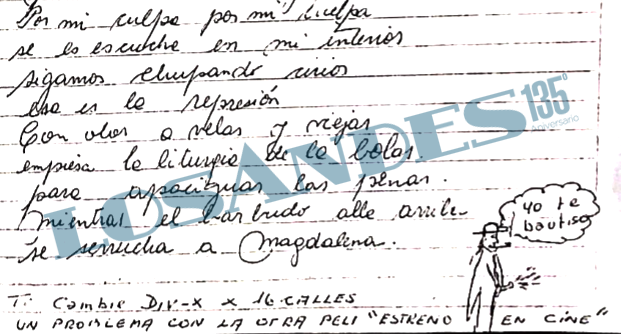 Por mi culpa por mi culpa
se lo escuche en mi interior
sigamos chupando cirios
esa es la represión
Con olor a velas y viejas
empiesa la liturgia de la bolas.
para apaciguar las penas.
mientras el barbudo alla arriba
se serrucha a Magdalena.
LOS ANDES 135° Aniversario
yo te
bautiso
T: Cambie DIV-X x 16 CALLES
UN PROBLEMA CON LA OTRA PELI "ESTRENO EN CINE"